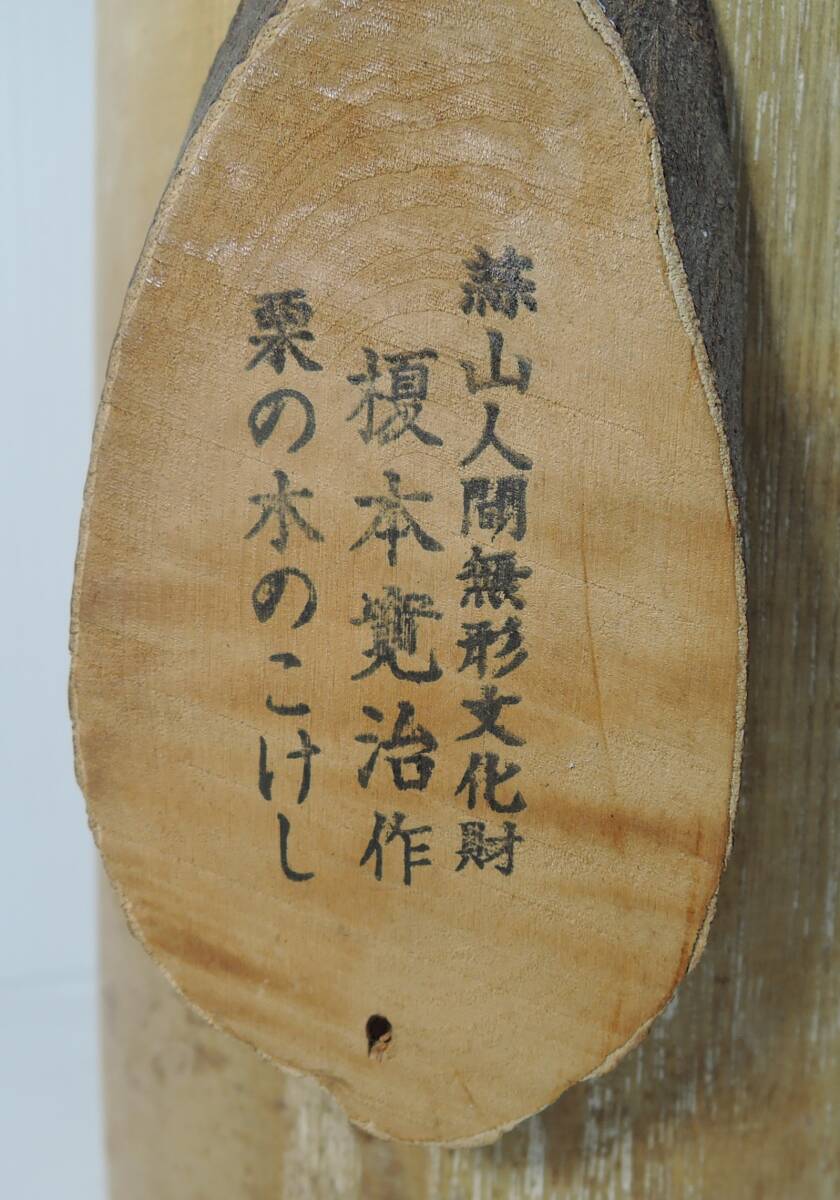 蒜山人間無形文化財
榎本寛治作
栗の木のこけし